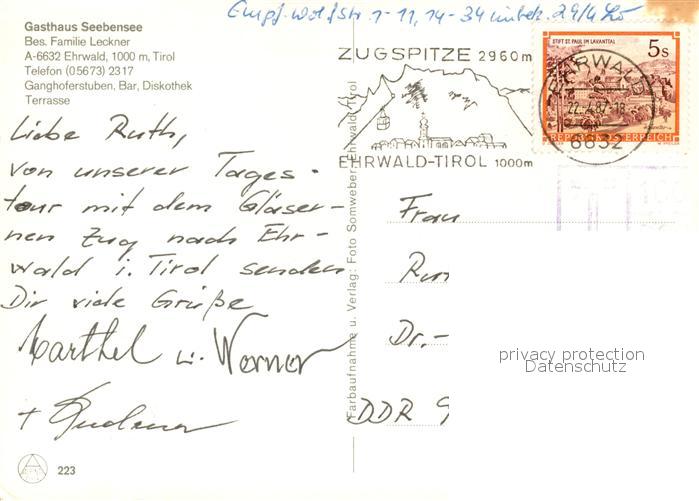 Empf. wolfstr. 1-11, 14-34 unbek. 29/4
Gasthaus Seebensee
Bes. Familie Leckner
A-6632 Ehrwald, 1000 m, Tirol
Telefon (05673) 2317
Ganghoferstuben, Bar, Diskothek
Terrasse
Liebe Ruth,
von unserer Tages-
tour mit dem Gläser-
nen Zug nach Ehr-
wald i. Tirol senden
Dir viele Grüße
Marthel u. Werner
+
223
Farbaufnahme u. Verlag: Foto Somweber, Ehrwald, Tirol
ZUGSPITZE 2960m
EHRWALD-TIROL 1000m
STIFT ST. PAUL IM LAVANTTAL
5s
REPUBLIK ÖSTERREICH
EHRWALD
22.-4.87-18
6632
Frau
Dr.-
DDR
privacy protection
Datenschutz